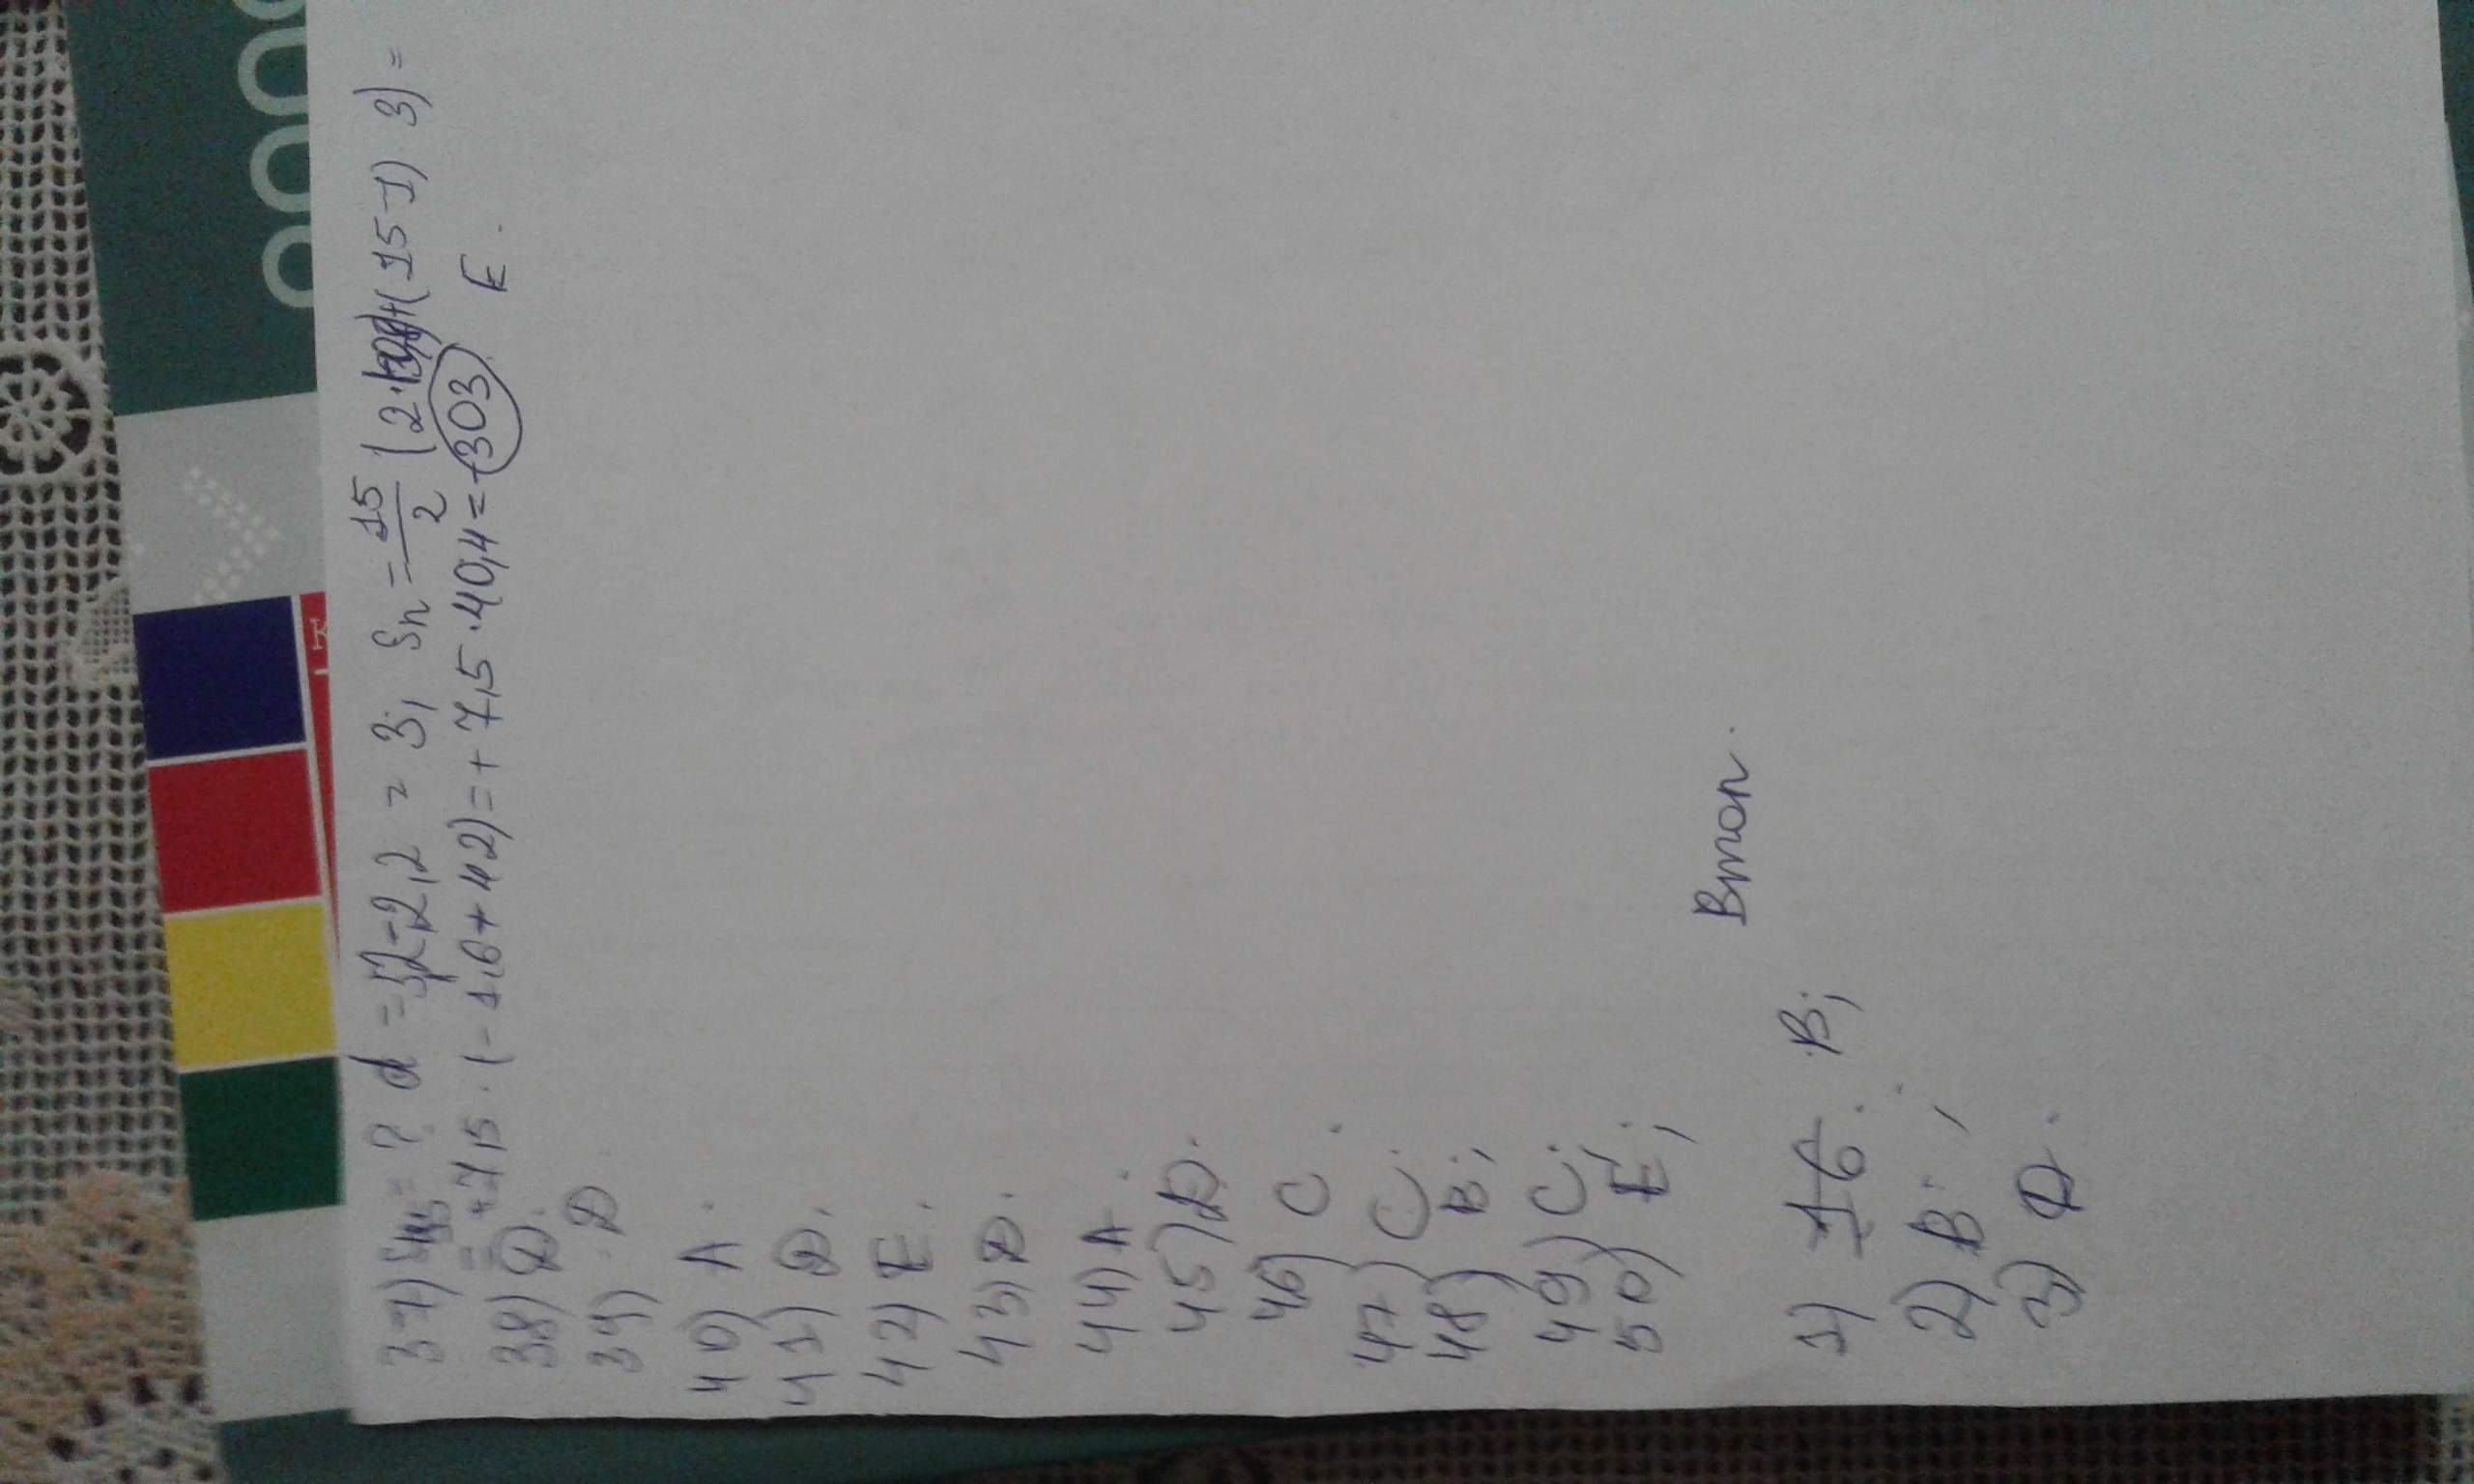 37) S₁₅ = ? d = 5,2-2,2 = 3; Sn = 15/2 (2· +(15-1)·3) =
= +7,15·(-1,6+42) = +7,5·40,4 = 303 E.
38) D.
39) D
40) A.
41) D.
42) E.
43) D.
44) A.
45) D.
46) C.
47) C.
48) B.;
49) C.
50) E;
Вмон.
1) B;
2) B.;
3) D.